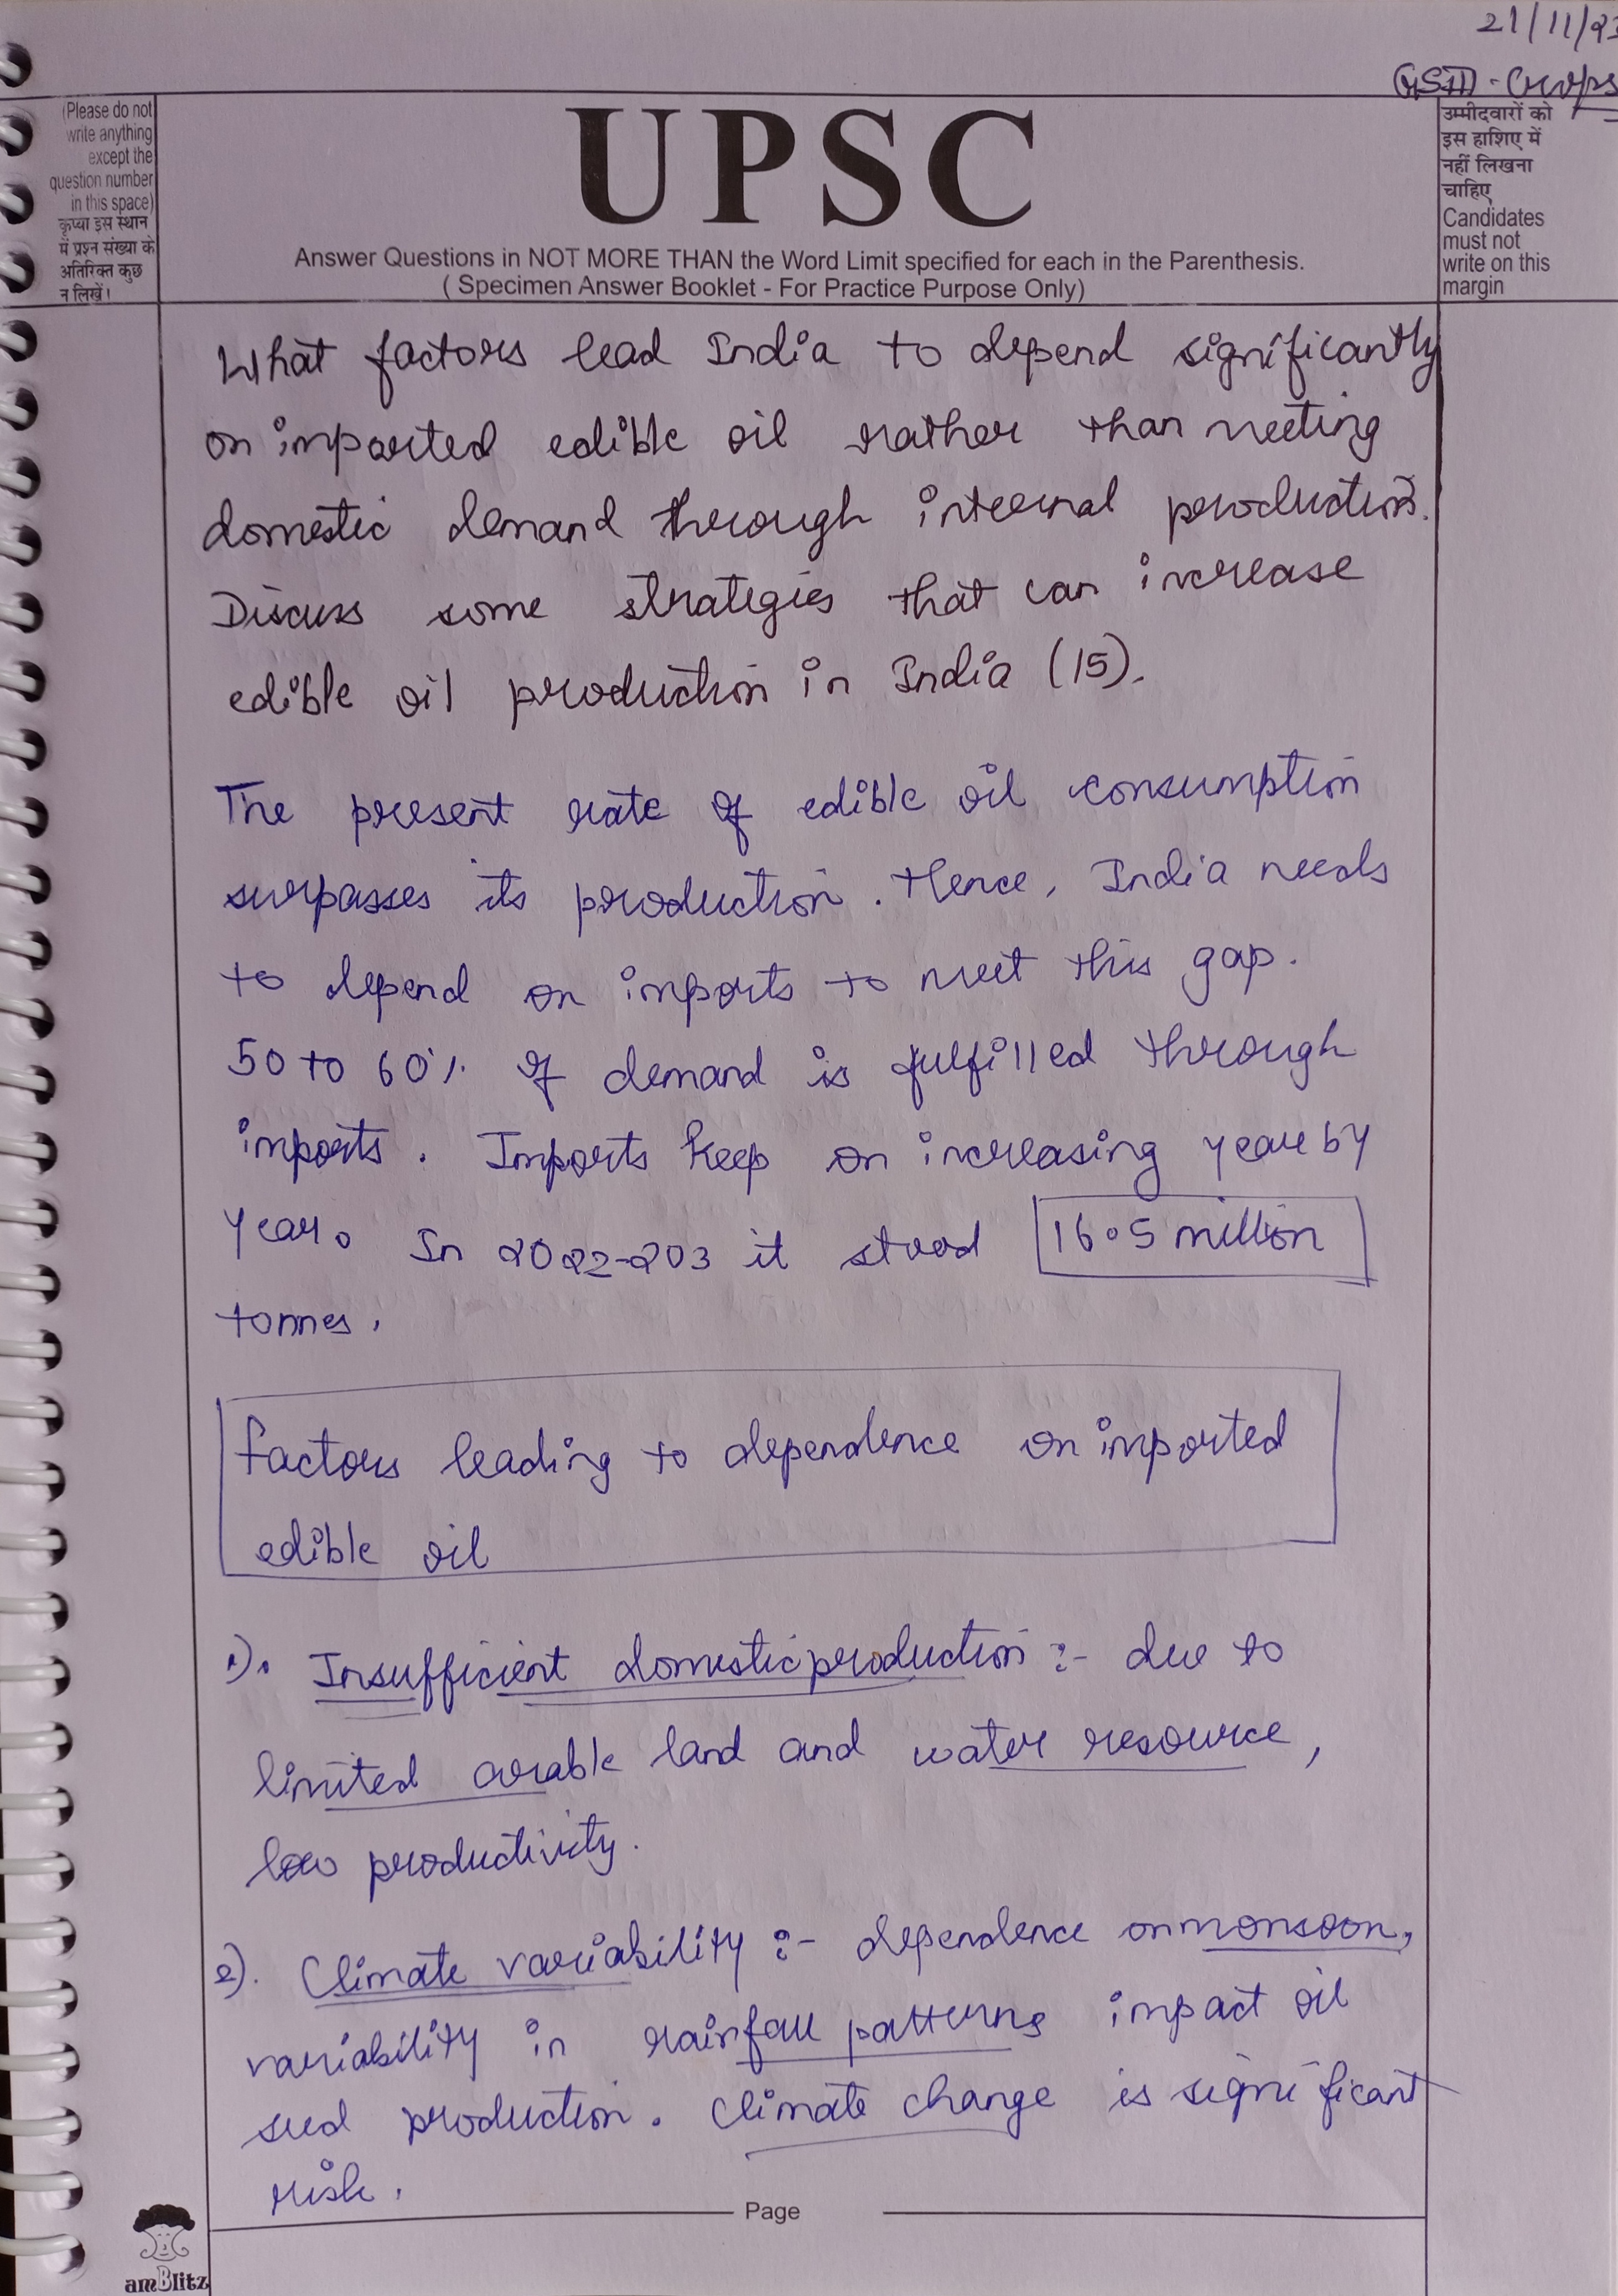 21/11/23
GSIII - Crops
(Please do not
write anything
except the
question number
in this space)
कृप्या इस स्थान
में प्रश्न संख्या के
अतिरिक्त कुछ
न लिखें।
UPSC
Answer Questions in NOT MORE THAN the Word Limit specified for each in the Parenthesis.
( Specimen Answer Booklet - For Practice Purpose Only)
उम्मीदवारों को
इस हाशिए में
नहीं लिखना
चाहिए
Candidates
must not
write on this
margin
What factors lead India to depend significantly
on imported edible oil rather than meeting
domestic demand through internal production.
Discuss some strategies that can increase
edible oil production in India (15).
The present rate of edible oil consumption
surpasses its production. Hence, India needs
to depend on imports to meet this gap.
50 to 60% of demand is fulfilled through
imports. Imports keep on increasing year by
year. In 2022-203 it stood 16.5 million
tonnes.
factors leading to dependence on imported
edible oil
1). Insufficient domestic production :- due to
limited arable land and water resource,
low productivity.
2). Climate variability :- dependence on monsoon,
variability in rainfall patterns impact oil
seed production. Climate change is significant
risk.
Page
amBlitz